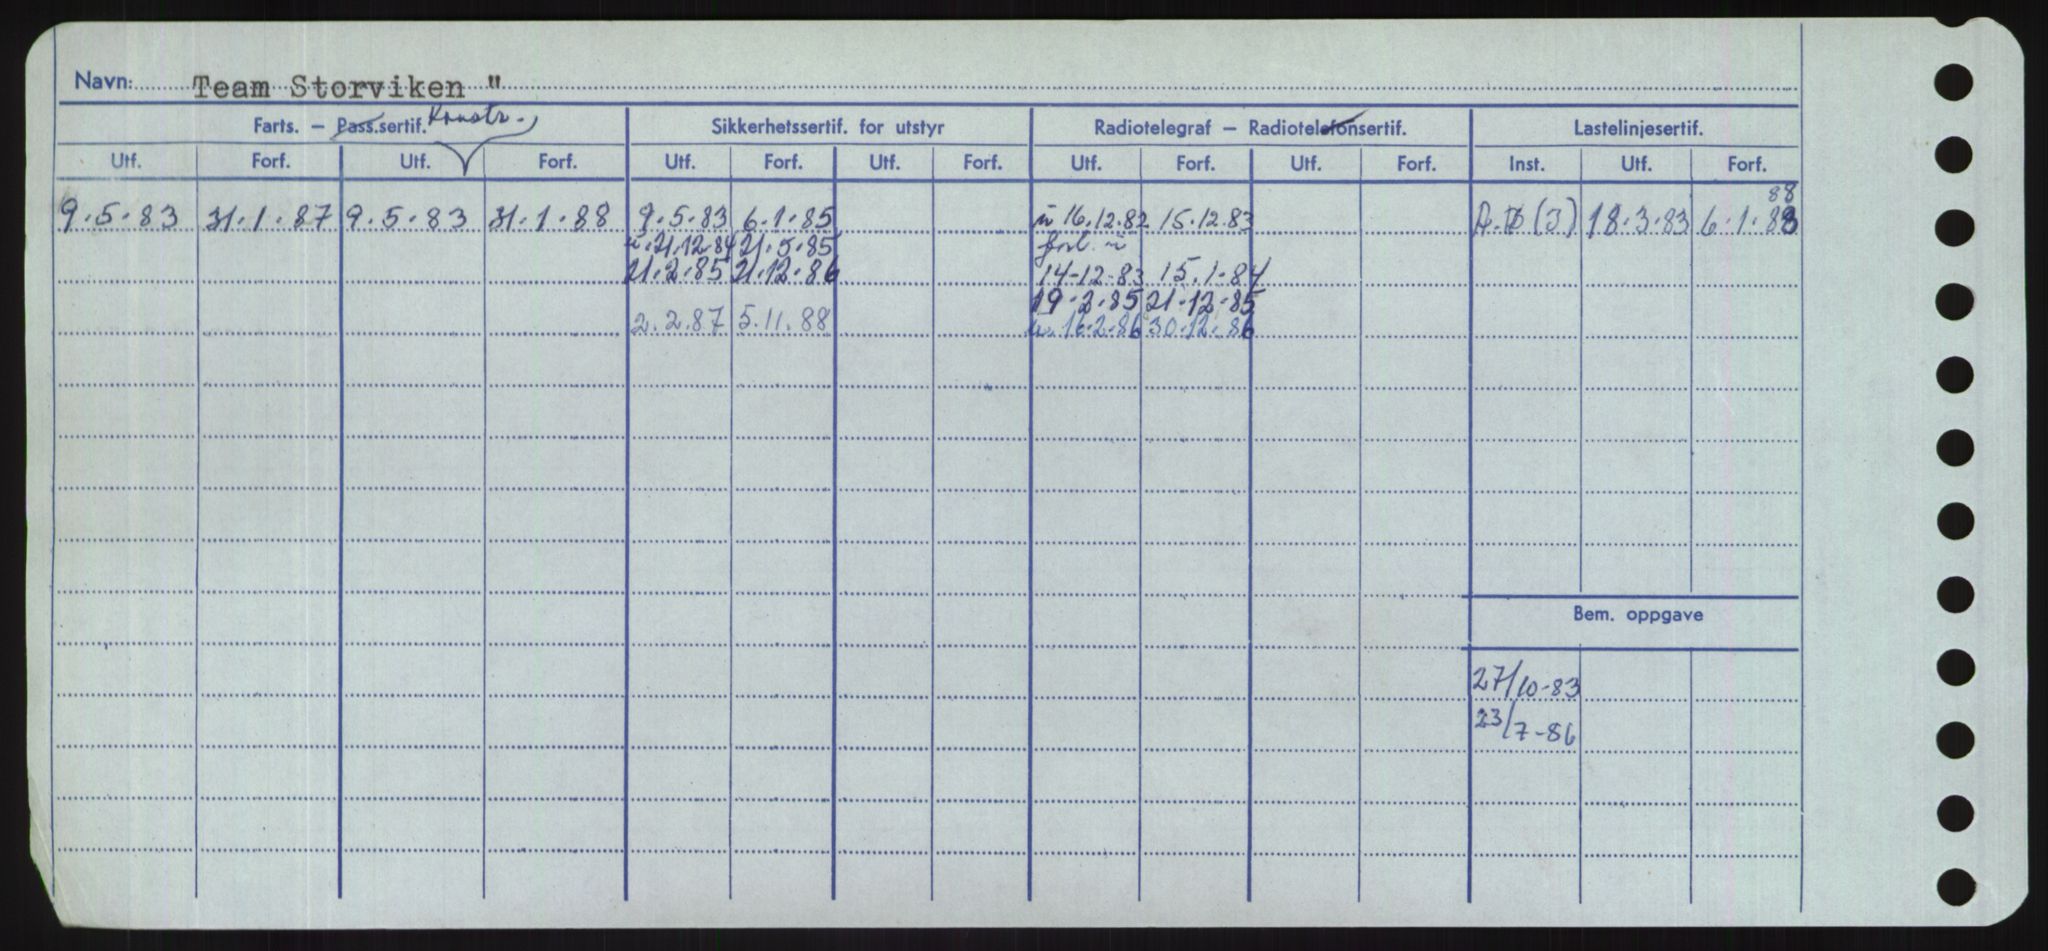 Navn: Team Storviken "
Farts. – Pass.sertif. Konstr. Sikkerhetssertif. for utstyr Radiotelegraf – Radiotelefonsertif. Lastelinjesertif.
Utf. Forf. Utf. Forf. Utf. Forf. Utf. Forf. Utf. Forf. Utf. Forf. Inst. Utf. Forf.
88
9.5.83 31.1.87 9.5.83 31.1.88 9.5.83 6.1.85 u 16.12.82 15.12.83 (J) 18.3.83 6.1.88
u. 21.12.84 21.5.85 forl. u
21.2.85 21.12.86 14-12-83 15.1-84
19-2-85 21-12-85
2.2.87 5.11.88 u. 16.2.86 30.12.86
Bem. oppgave
27/10-83
23/7-86